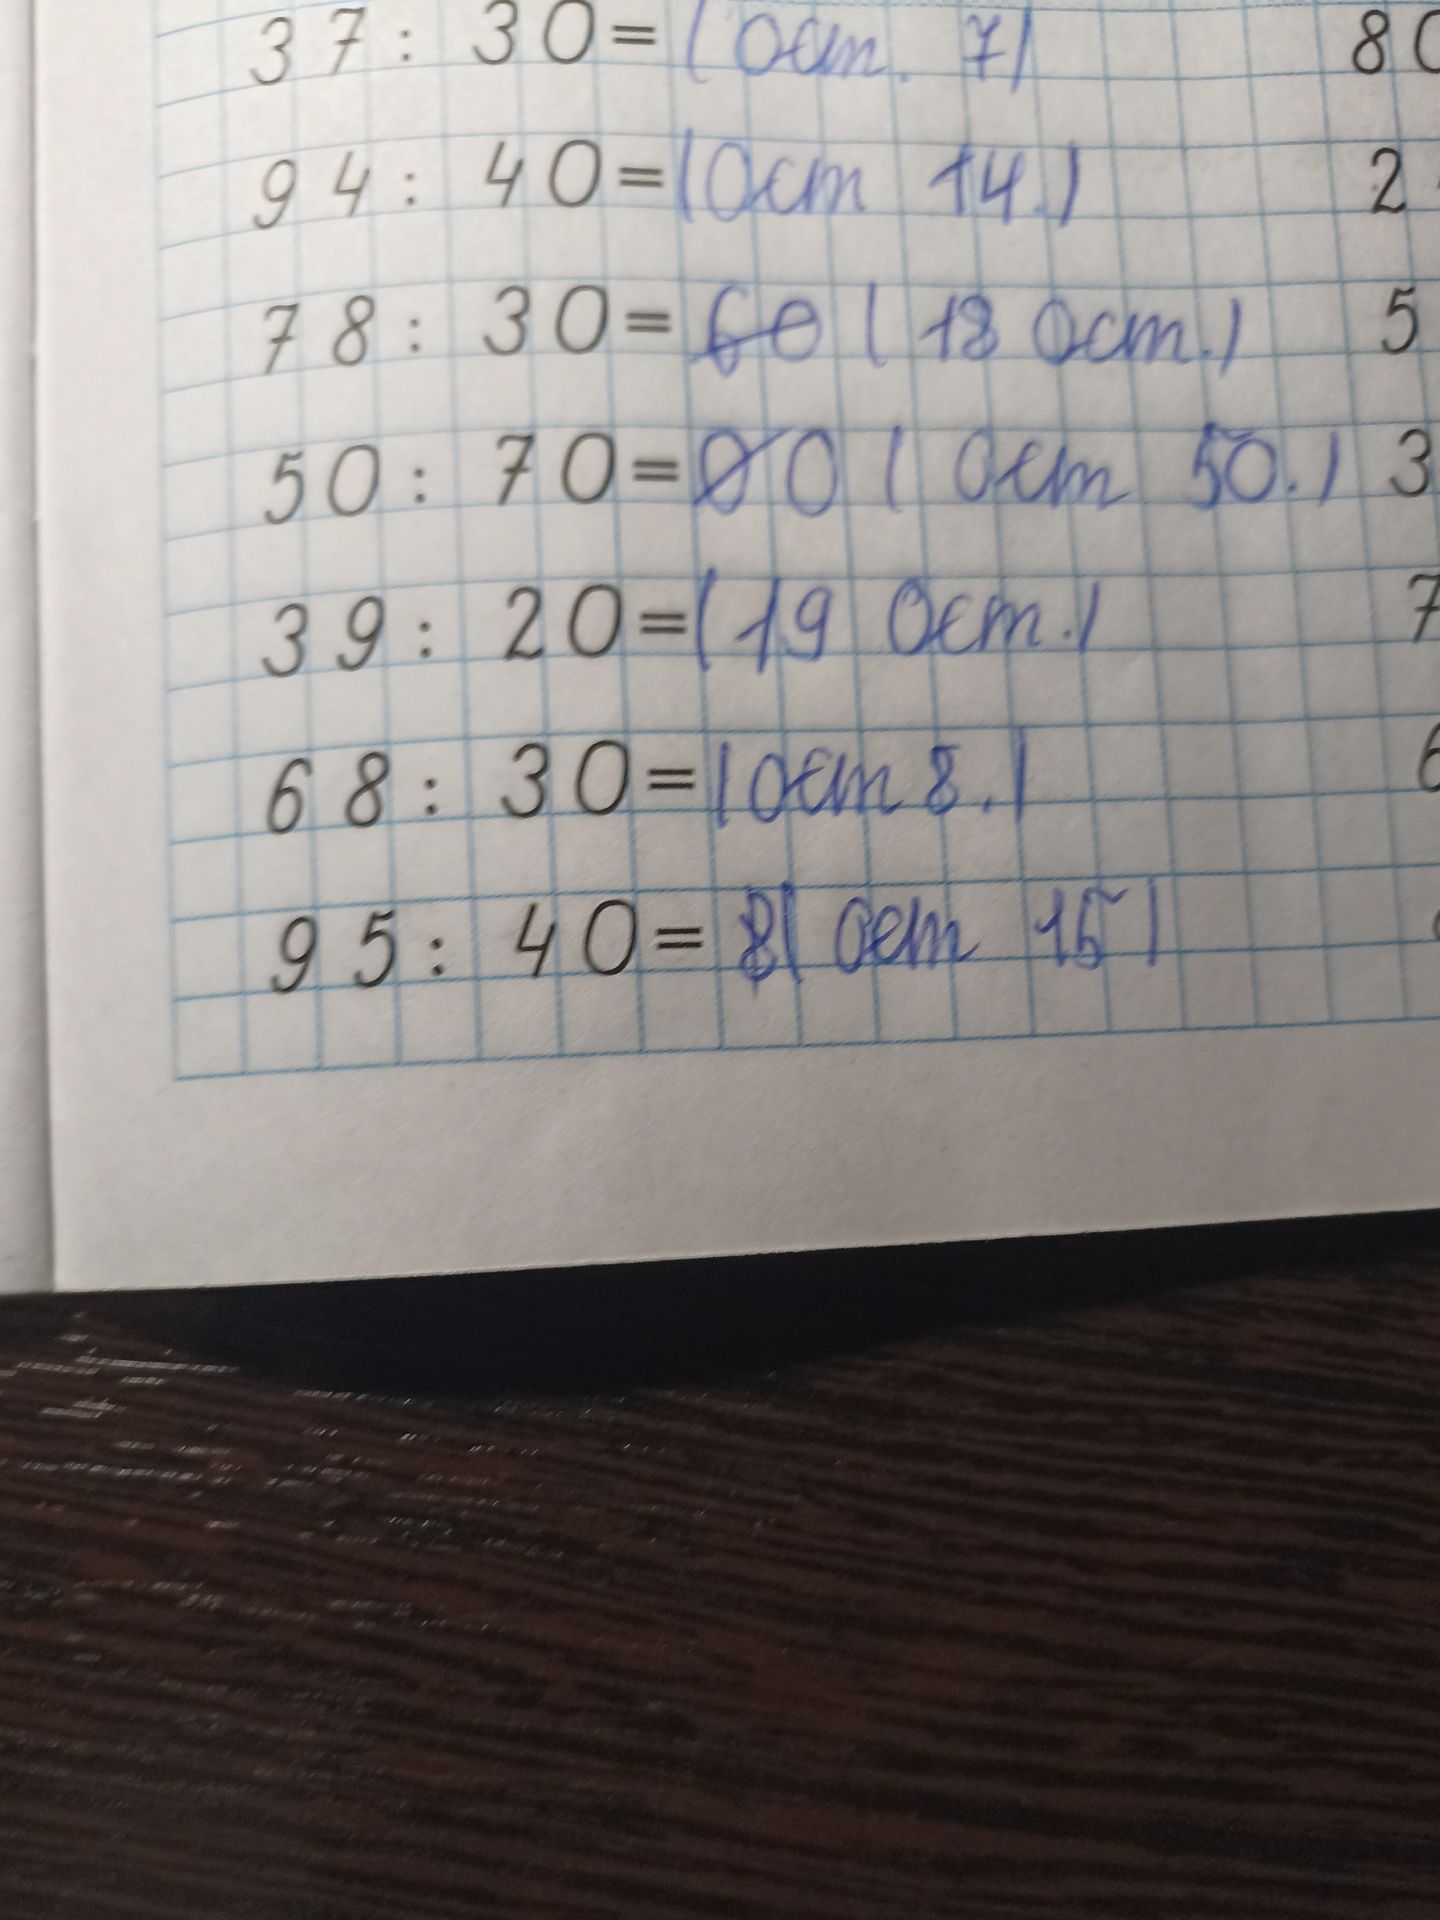 37 : 30 = (Ост. 7) 80
94 : 40 = (Ост 14.) 2
78 : 30 = (18 Ост.) 5
50 : 70 = 0 (Ост 50.) 3
39 : 20 = (19 Ост.) 7
68 : 30 = (Ост 8.) 6
95 : 40 = (Ост 15)